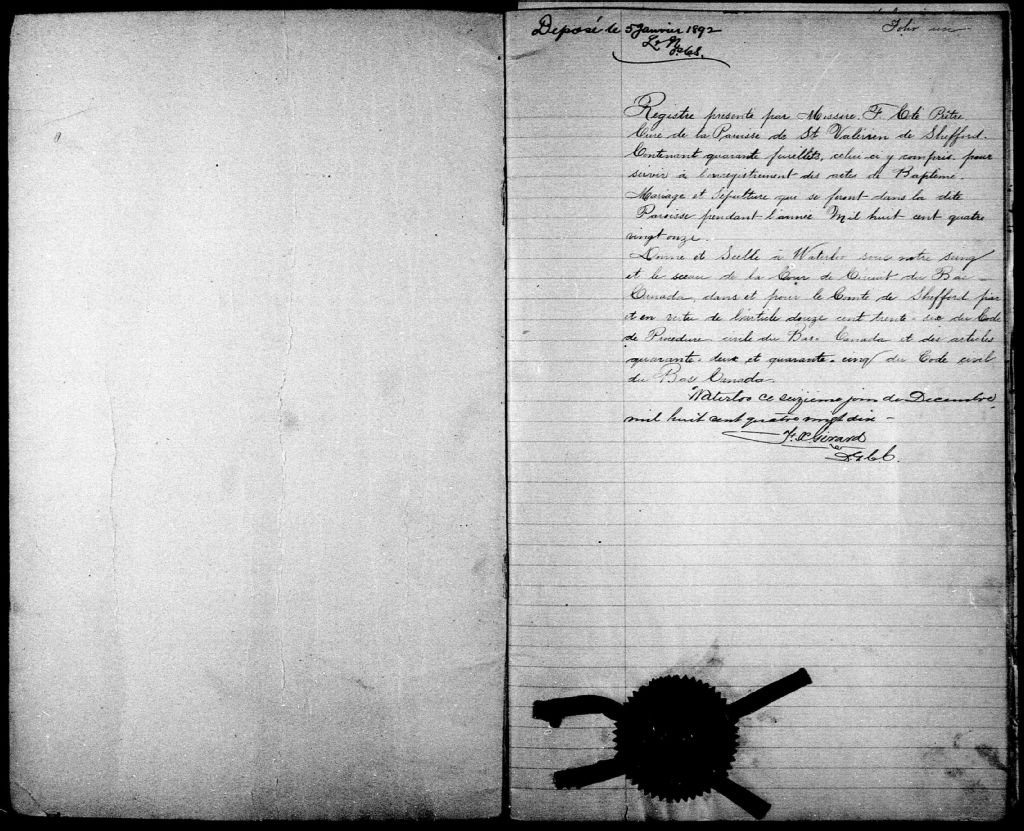 Déposé le 5 Janvier 1892
Folio un
Registre presenté par Messire. F. Coté Prêtre
Curé de la Paroisse de St. Valérien de Shefford.
Contenant quarante feuillets, celui-ci y compris, pour
servir à l'enregistrement des actes de Baptême.
Mariage et Sépulture qui se feront dans la dite
Paroisse pendant l'année Mil huit cent quatre
vingt onze.
Donné et Scellé à Waterloo sous notre seing
et le sceau de la Cour de Circuit du Bas -
Canada, dans et pour le Comté de Shefford par
et en vertu de l'article douze cent trente-six du Code
de Procédure civile du Bas-Canada et des articles
quarante-deux et quarante-cinq du Code civil
du Bas Canada.
Waterloo ce seizieme jour de Decembre
mil huit cent quatre vingt dix -
F. X. Girard